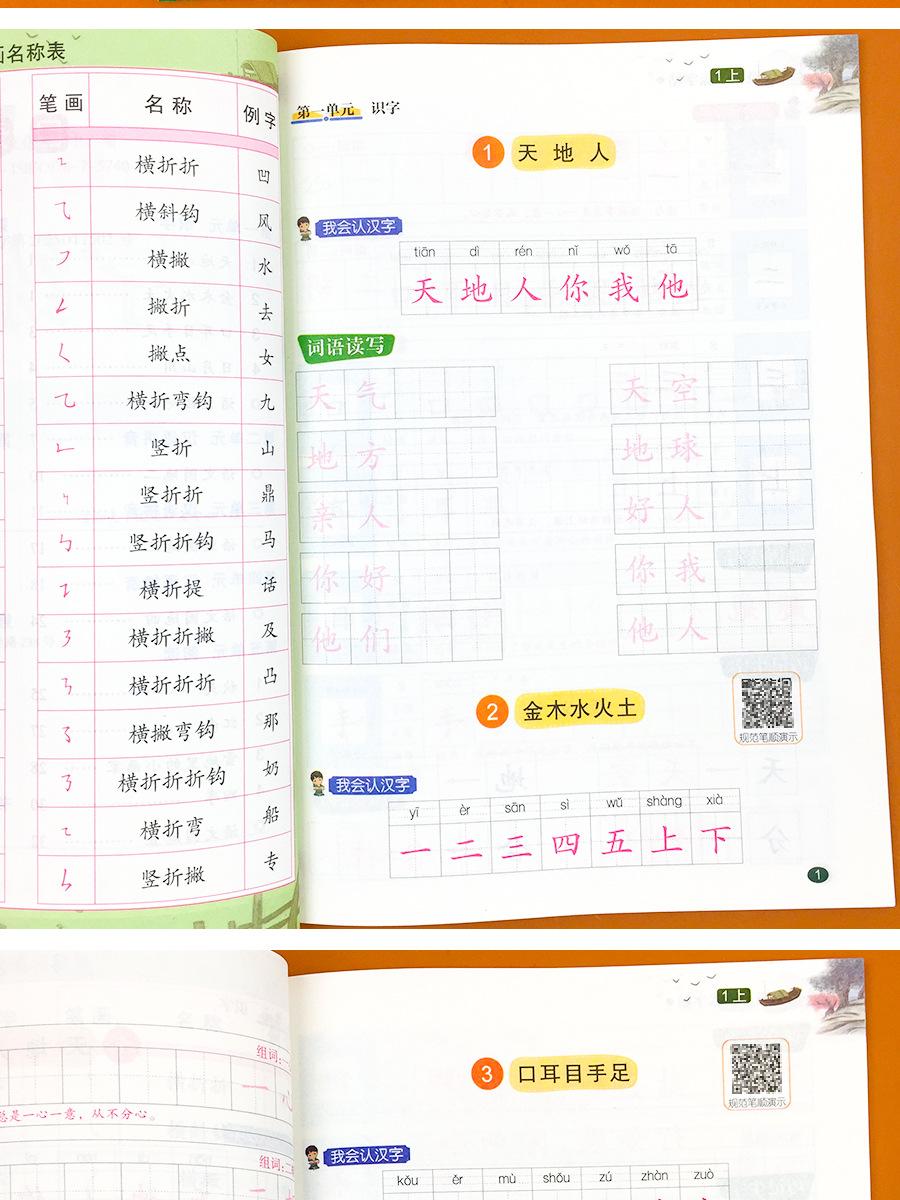 画名称表
笔画 名称 例字
横折折 凹
横斜钩 风
横撇 水
撇折 去
撇点 女
横折弯钩 九
竖折 山
竖折折 鼎
竖折折钩 马
横折提 话
横折折撇 及
横折折折 凸
横撇弯钩 那
横折折折钩 奶
横折弯 船
竖折撇 专
1上
第一单元 识字
1 天地人
我会认汉字
tiān dì rén nǐ wǒ tā
天 地 人 你 我 他
词语读写
天气 天空
地方 地球
亲人 好人
你好 你我
他们 他人
2 金木水火土
规范笔顺演示
我会认汉字
yī èr sān sì wǔ shàng xià
一 二 三 四 五 上 下
1
1上
组词:一
是一心一意，从不分心。
组词:二
3 口耳目手足
规范笔顺演示
我会认汉字
kǒu ěr mù shǒu zú zhàn zuò